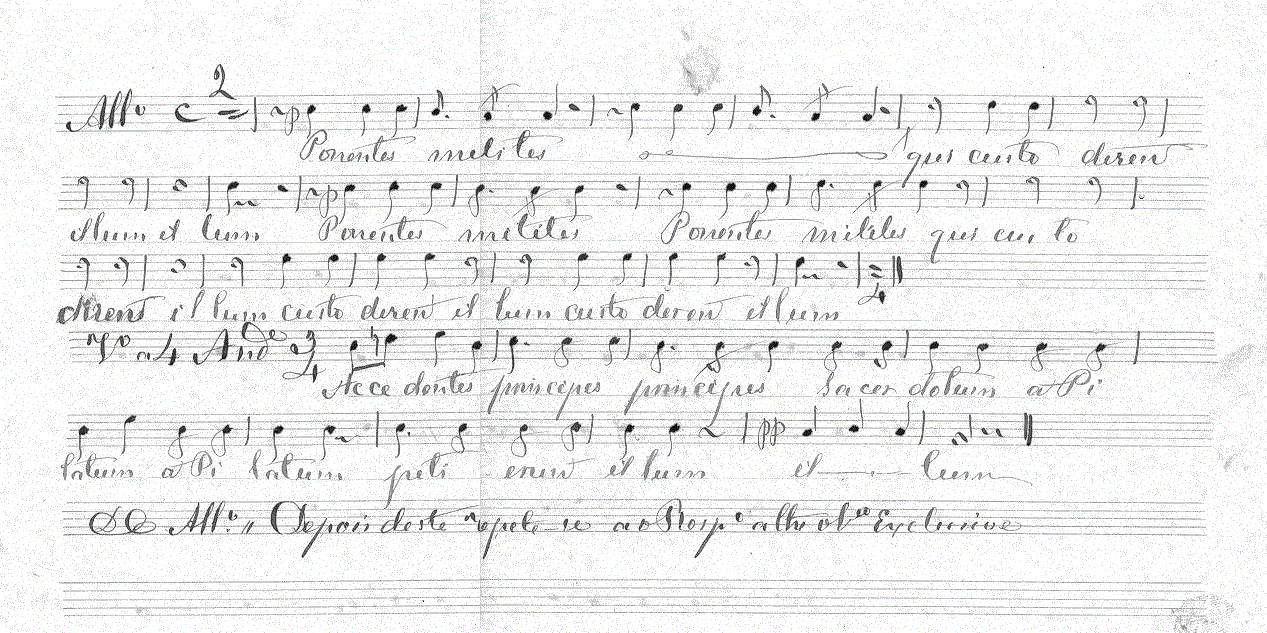 Allo C 2
p
Ponentes milites qui custo diren
p
illum il lum Ponentes milites Ponentes milites qui cus to
4
direns il lum custo diren il lum custo diren il lum
Vo a 4 Ande 3 4
Acce dentes principes principes sacer dotum a Pi
pp
latum a Pi latum peti erun il lum il lum
DC Allo Depois deste repete-se ao Respo athe o Exclusive